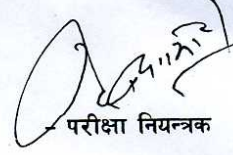 - परीक्षा नियन्त्रक